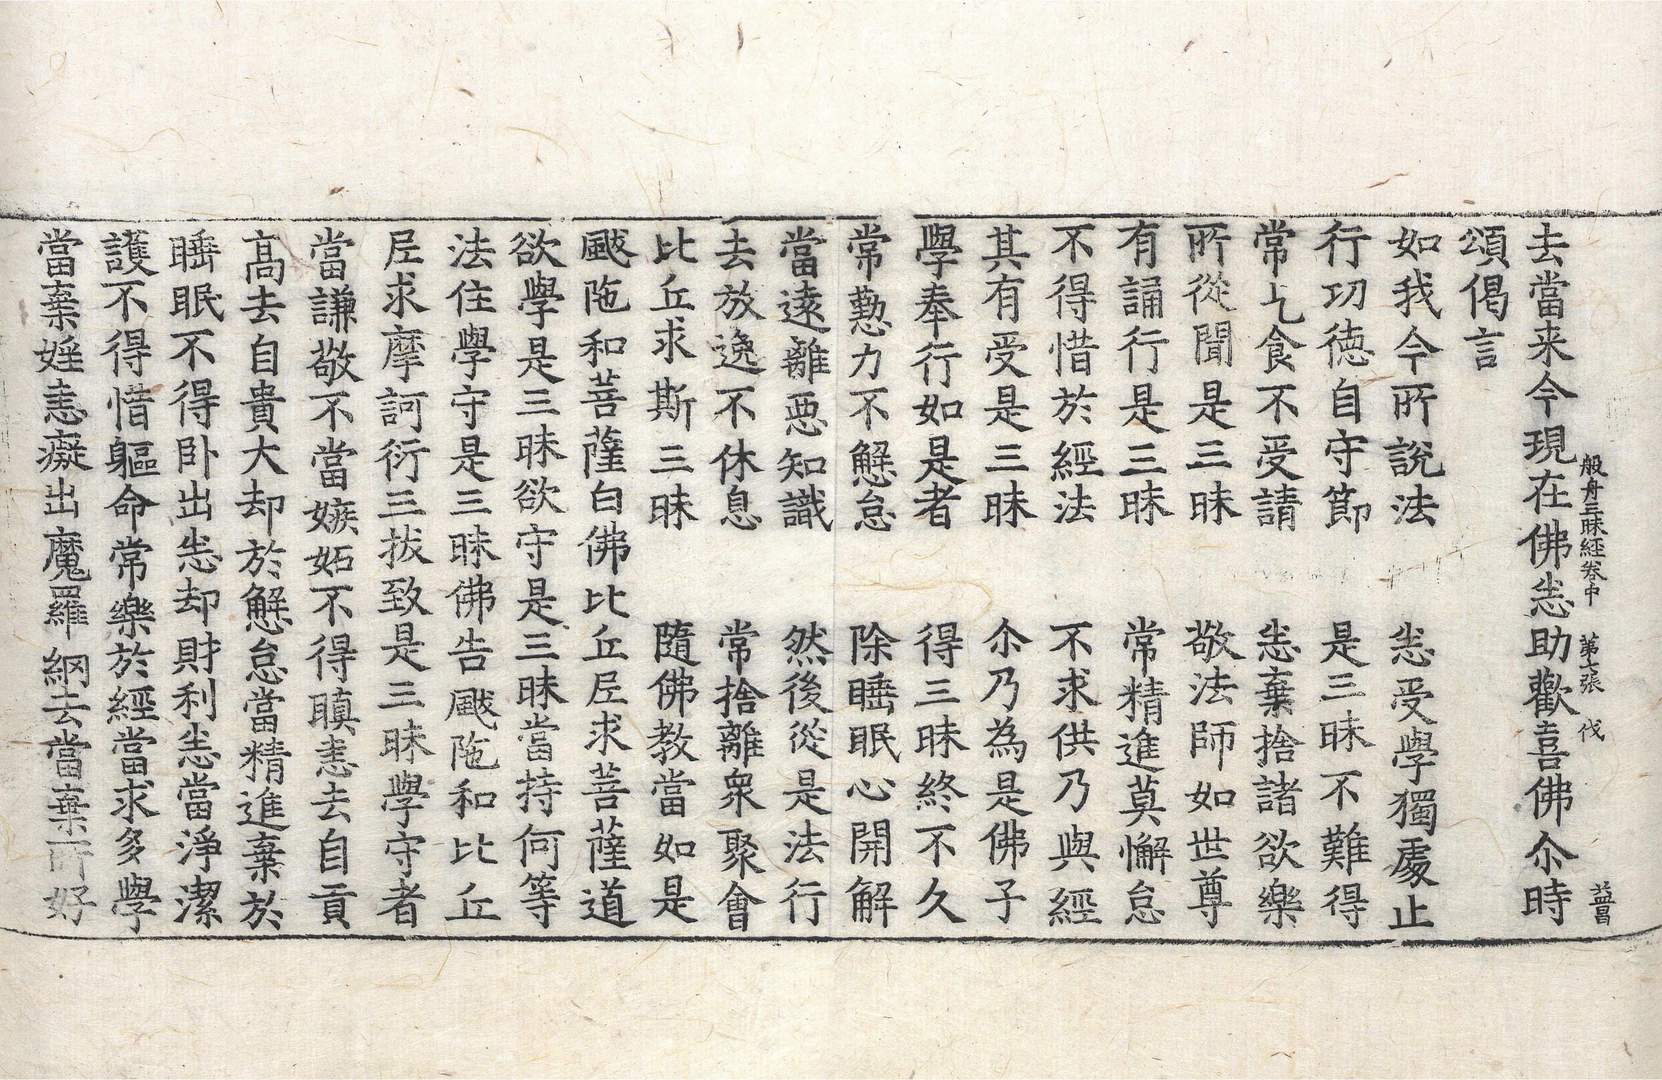 般舟三昧經卷中 第七張 伐
益昌
去當来今現在佛恙助歡喜佛尒時
頌偈言
如我今所說法 恙受學獨處止
行功德自守節 是三昧不難得
常乞食不受請 恙棄捨諸欲樂
所從聞是三昧 敬法師如世尊
有誦行是三昧 常精進莫懈怠
不得惜於經法 不求供乃與經
其有受是三昧 尒乃為是佛子
學奉行如是者 得三昧終不久
常懃力不懈怠 除睡眠心開解
當遠離惡知識 然後從是法行
去放逸不休息 常捨離衆聚會
比丘求斯三昧 隨佛教當如是
颰陁和菩薩白佛比丘㞐求菩薩道
欲學是三昧欲守是三昧當持何等
法住學守是三昧佛告颰陁和比丘
㞐求摩訶衍三拔致是三昧學守者
當謙敬不當嫉妬不得瞋恚去自貢
髙去自貴大却於懈怠當精進棄於
睡眠不得卧出恙却財利恙當淨潔
護不得惜軀命常樂於經當求多學
當棄婬恚癡出魔羅網去當棄所好